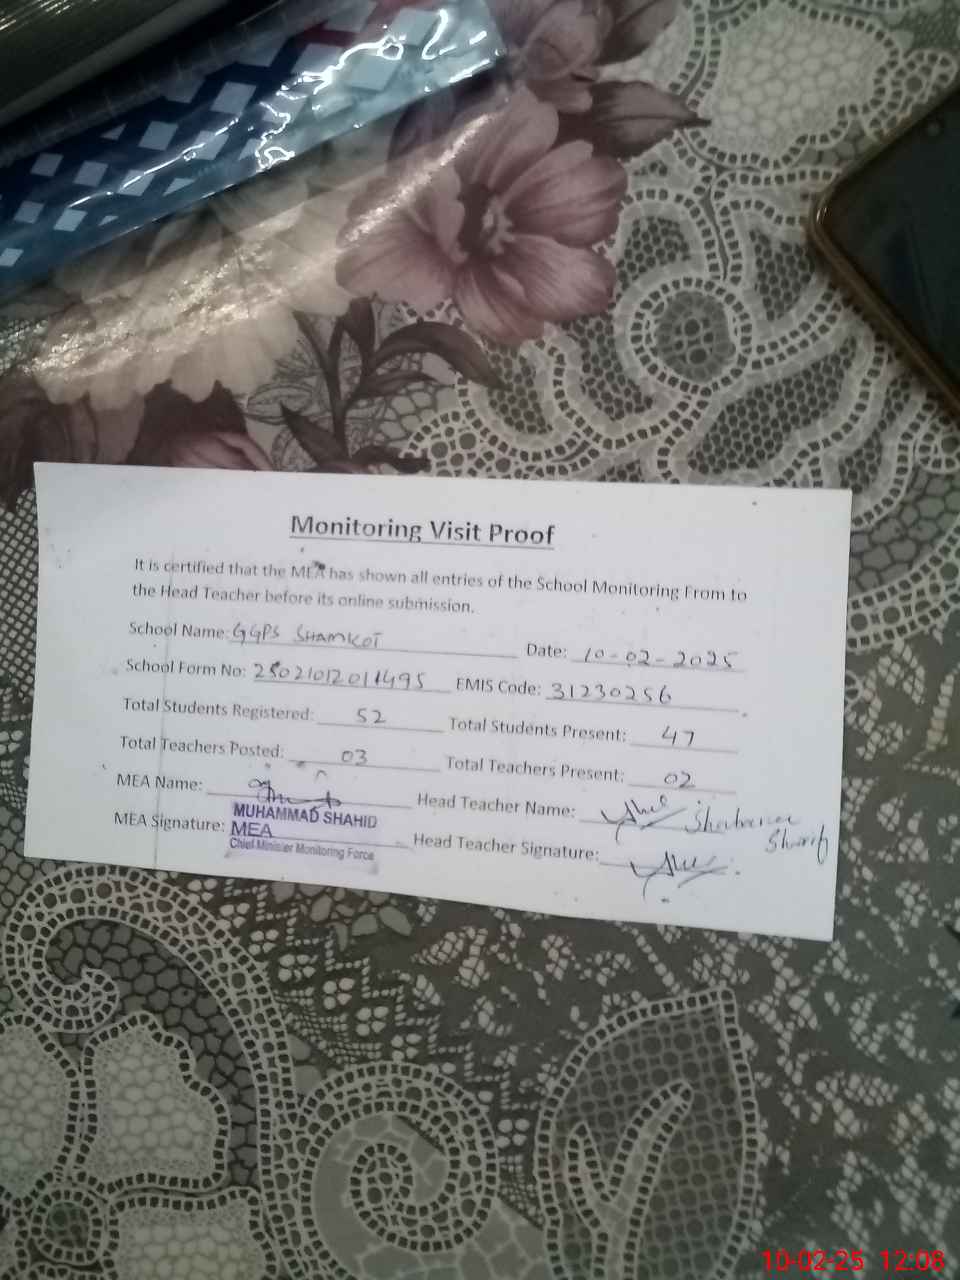 Monitoring Visit Proof
It is certified that the MEA has shown all entries of the School Monitoring From to
the Head Teacher before its online submission.
School Name: GGPS SHAMKOT Date: 10-02-2025
School Form No: 25021012011495 EMIS Code: 31230256
Total Students Registered: 52 Total Students Present: 47
Total Teachers Posted: 03 Total Teachers Present: 02
MEA Name: Head Teacher Name: Shabana Sharif
MUHAMMAD SHAHID
MEA Signature: MEA Head Teacher Signature:
Chief Minister Monitoring Force
10-02-25 12:08